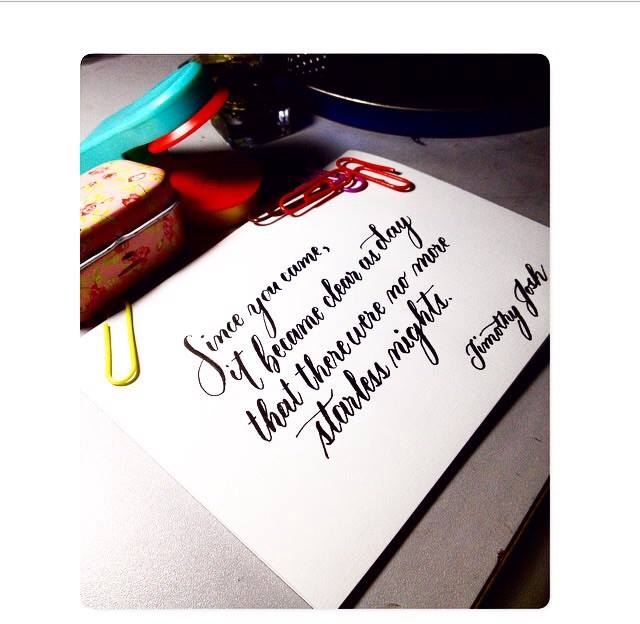 Since you came,
it became clear as day
that there were no more
starless nights.
Timothy Josh